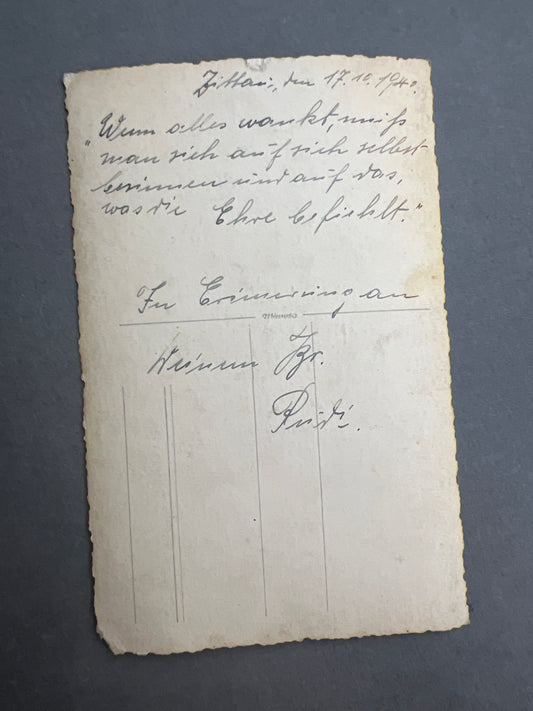 Zittau, den 17.10.1940.
"Wenn alles wankt, muß
man sich auf sich selbst
besinnen und auf das,
was die Ehre befiehlt."
In Erinnerung an
Br.
Rudi.